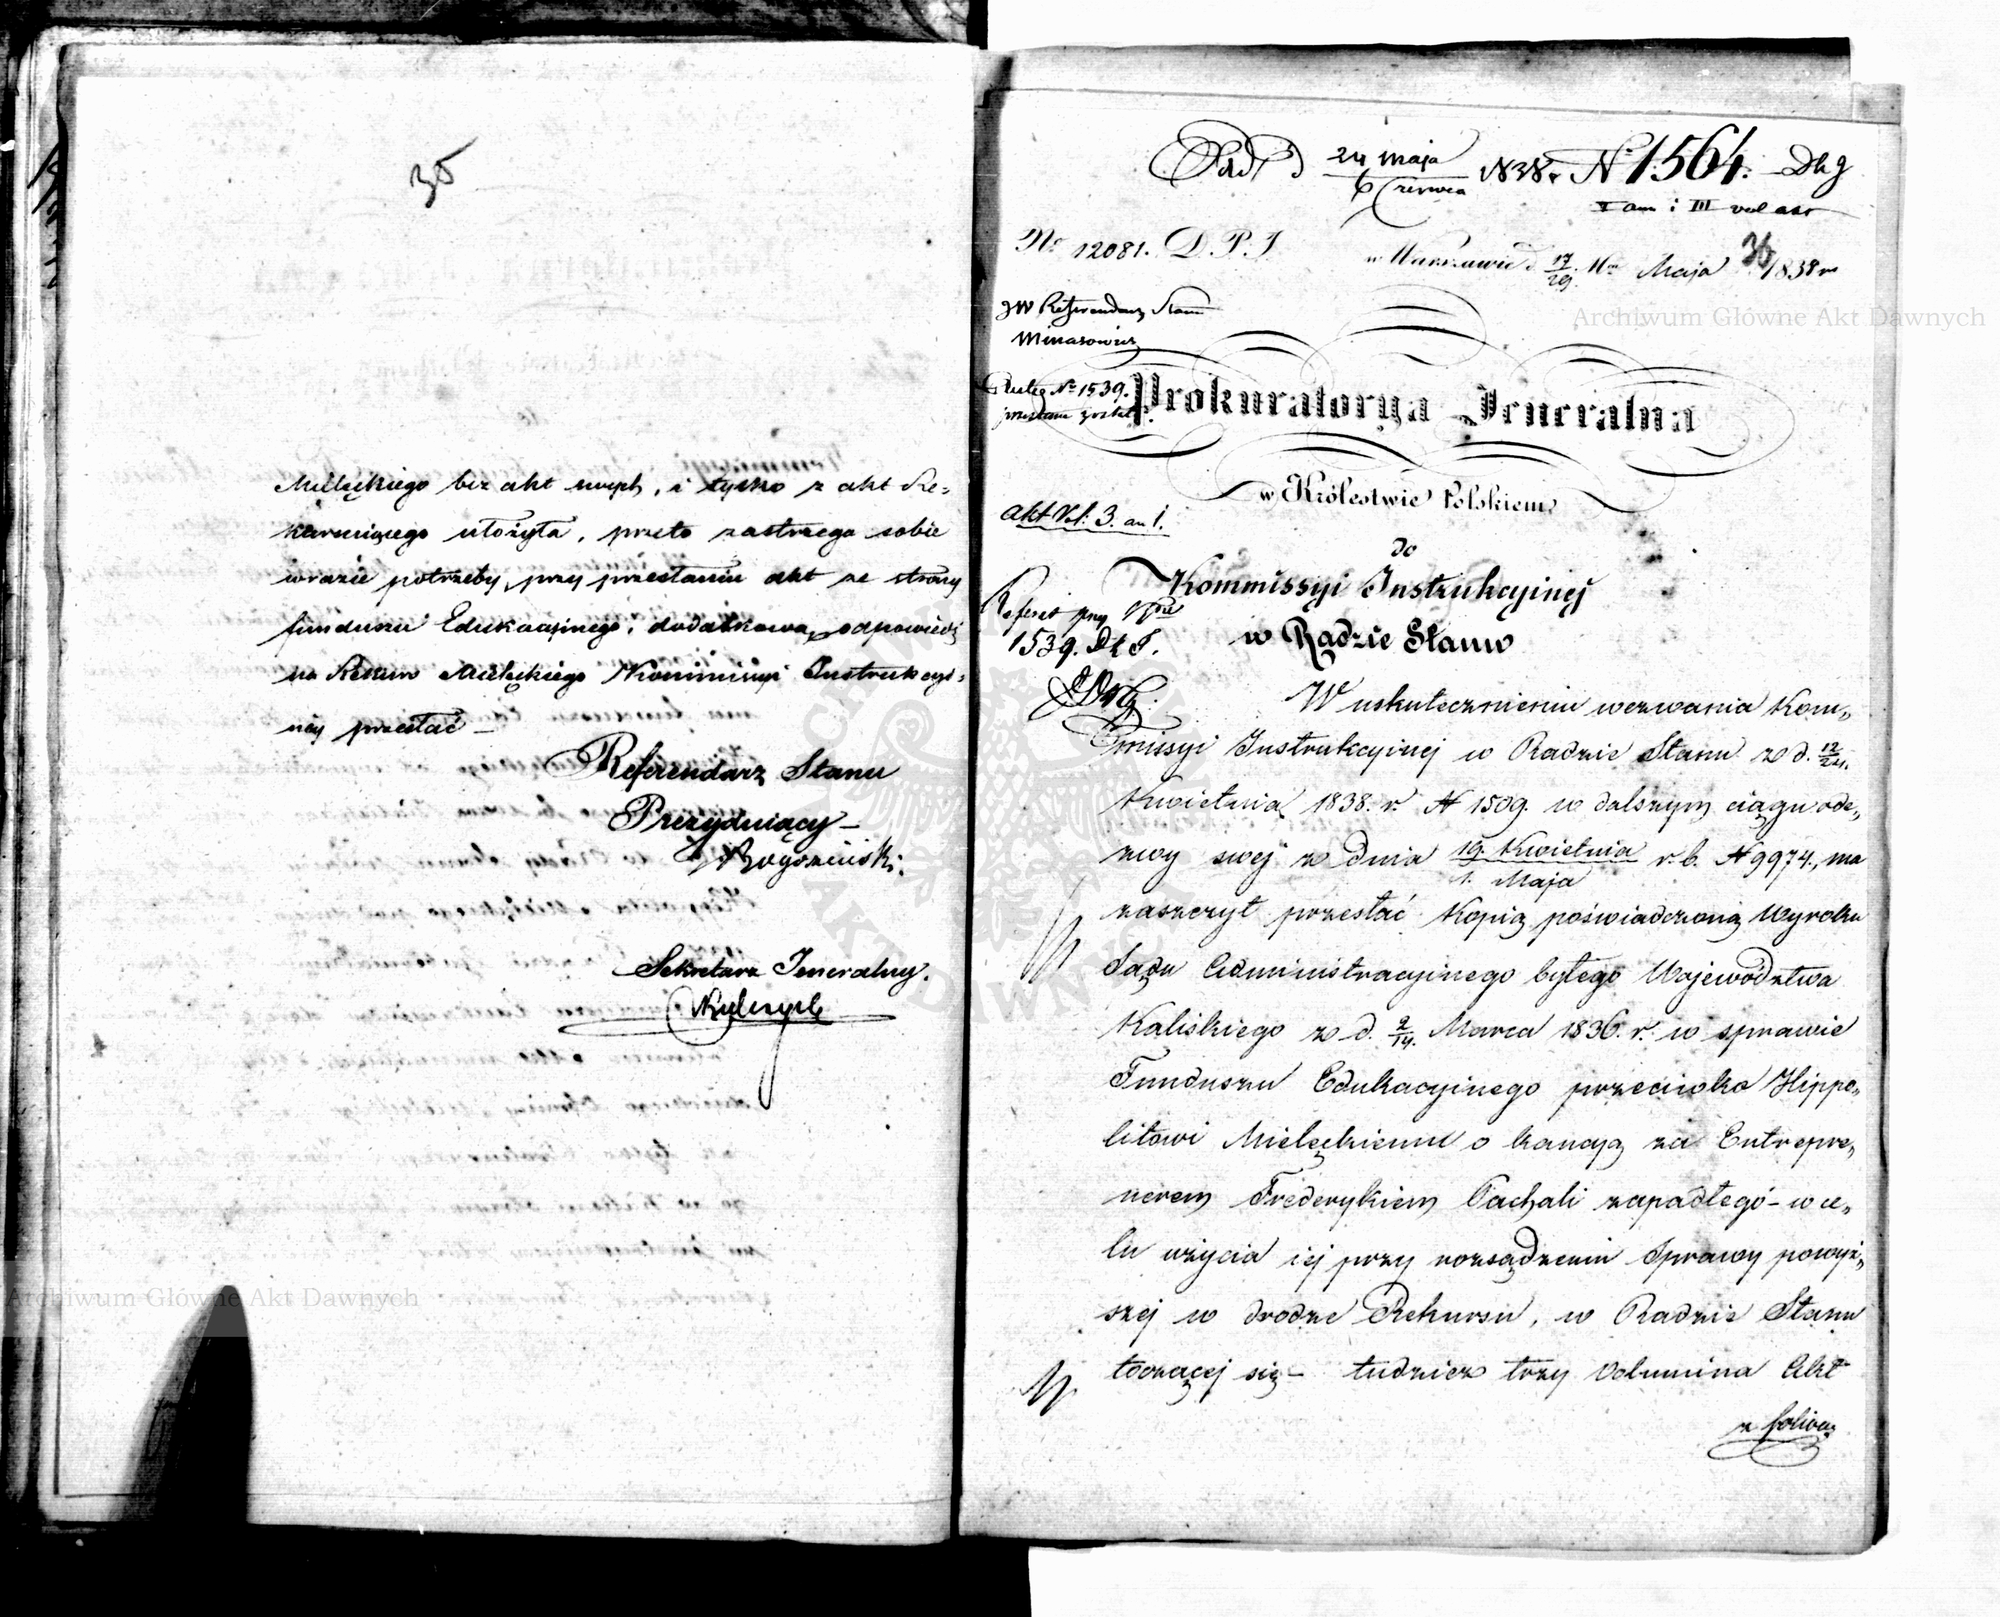 35
Mielęckiego bez akt swych, i tylko z akt Re-
kurującego ułożyła, przeto zastrzega sobie
w razie potrzeby, przy przesłaniu akt ze strony
funduszu Edukacyjnego, dodatkową odpowiedź
na Rekurs Mielęckiego Kommissyi Instrukcyi-
nej przesłać –
Referendarz Stanu
Prezyduiący –
Sekretarz Jeneralny.
24 Maja / 6 Czerwca 1838 r. N° 1564.
I ann i III vol akt
N° 12081. D. P. J.
w Warszawie d. 17/29. Maja 1838 r
36
JW Referendarz Stanu
Minasowicz
N° 1539.
Prokuratorya Jeneralna
w Królestwie Polskiem
akt Vol: 3. an 1.
do
Kommissyi Instrukcyinéj
w Radzie Stanu
Referat przy
1539.
W uskutecznieniu wezwania Kom-
missyi Instrukcyinej w Radzie Stanu z d. 12/24.
Kwietnia 1838. r. N 1509. w dalszym ciągu ode-
zwy swej z dnia 19. Kwietnia / 1. Maja r. b. N 9974., ma
zaszczyt przesłać Kopią poświadczoną Wyroku
Sądu Administracyinego byłego Województwa
Kaliskiego z d. 2/14. Marca 1836. r. w sprawie
Funduszu Edukacyinego przeciwko Hippo-
litowi Mielęckiemu o kaucyą za Entrepre-
nerem Frederykiem Pachali zapadłego – w ce-
lu użycia iej przy rozsądzeniu Sprawy powyż-
szej w drodze Rekursu, w Radzie Stanu
toczącej się – tudzież trzy Volumina Akt
Archiwum Główne Akt Dawnych
Archiwum Główne Akt Dawnych